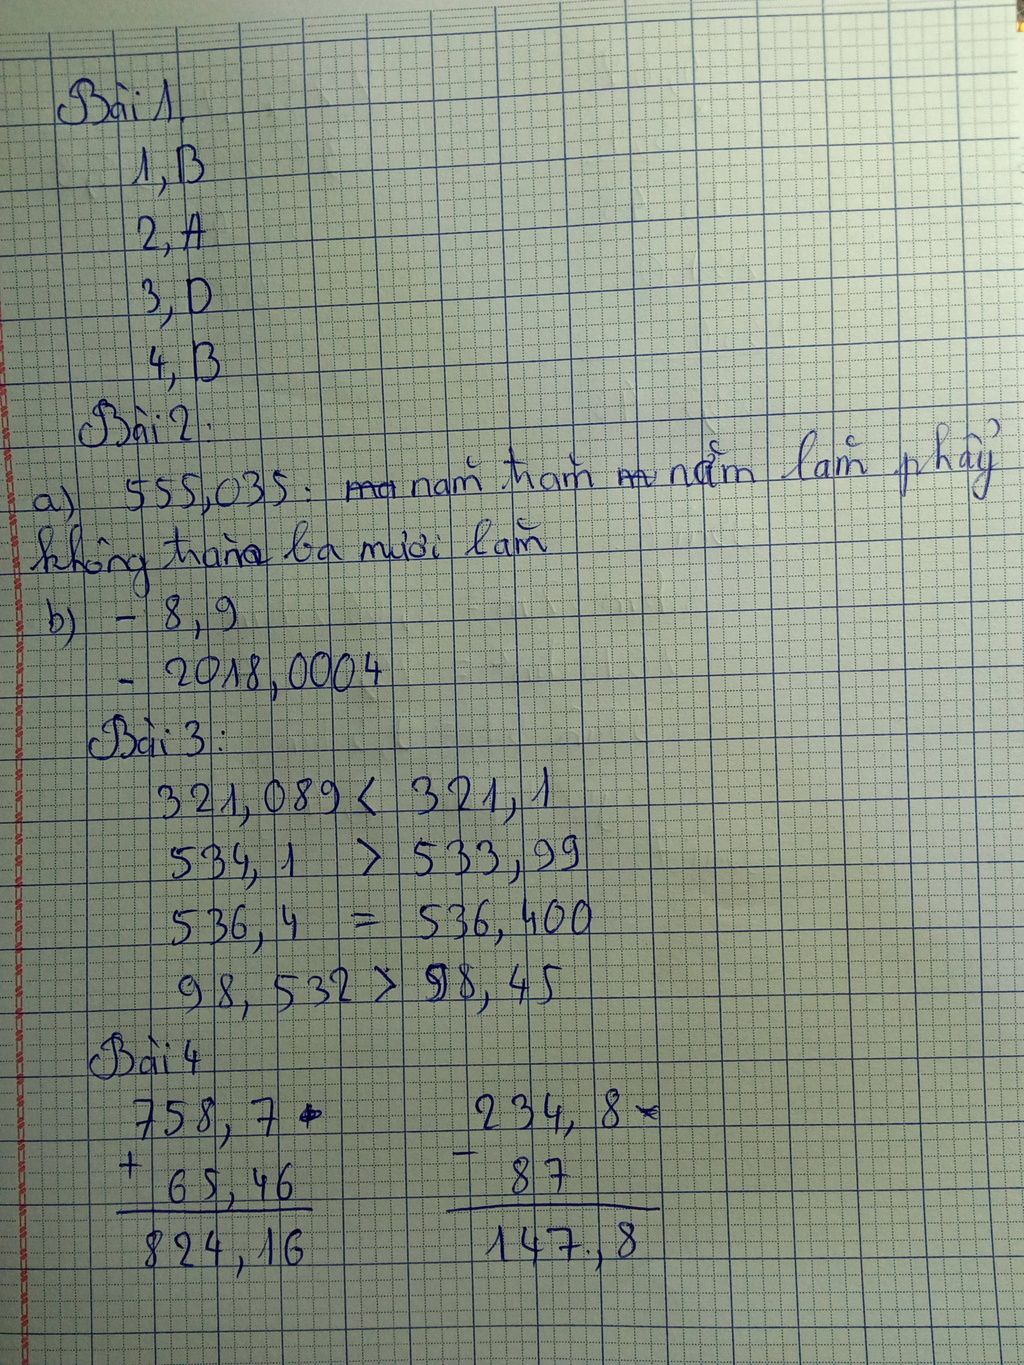 Bài 1
1, B
2, A
3, D
4, B
Bài 2:
a) 555,035: năm trăm năm lăm phẩy
không trăm ba mươi lăm
b) - 8,9
- 2018,0004
Bài 3:
321,089 < 321,1
534,1 > 533,99
536,4 = 536,400
98,532 > 98,45
Bài 4
758,7 234,8
+ 65,46 - 87
824,16 147,8